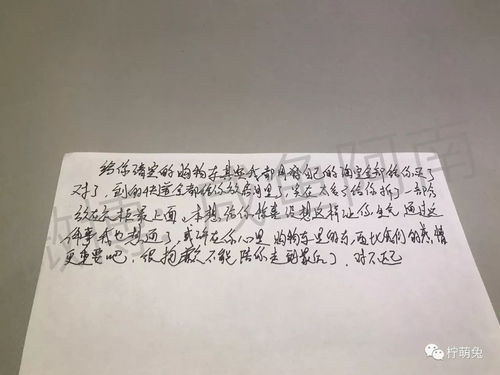 给你清空的购物车其实我都用自己的淘宝全部给你买了
对了，到的快递全部给你放房里了，实在太多了给你拆了一部分
放在衣柜最上面，本想给你惊喜没想这样让你生气 通过这
件事我也想通了，或许在你心里 购物车里的东西比我们的感情
更重要吧，很抱歉不能陪你走到最后了，对不起
微博 咸鱼阿南
柠萌兔